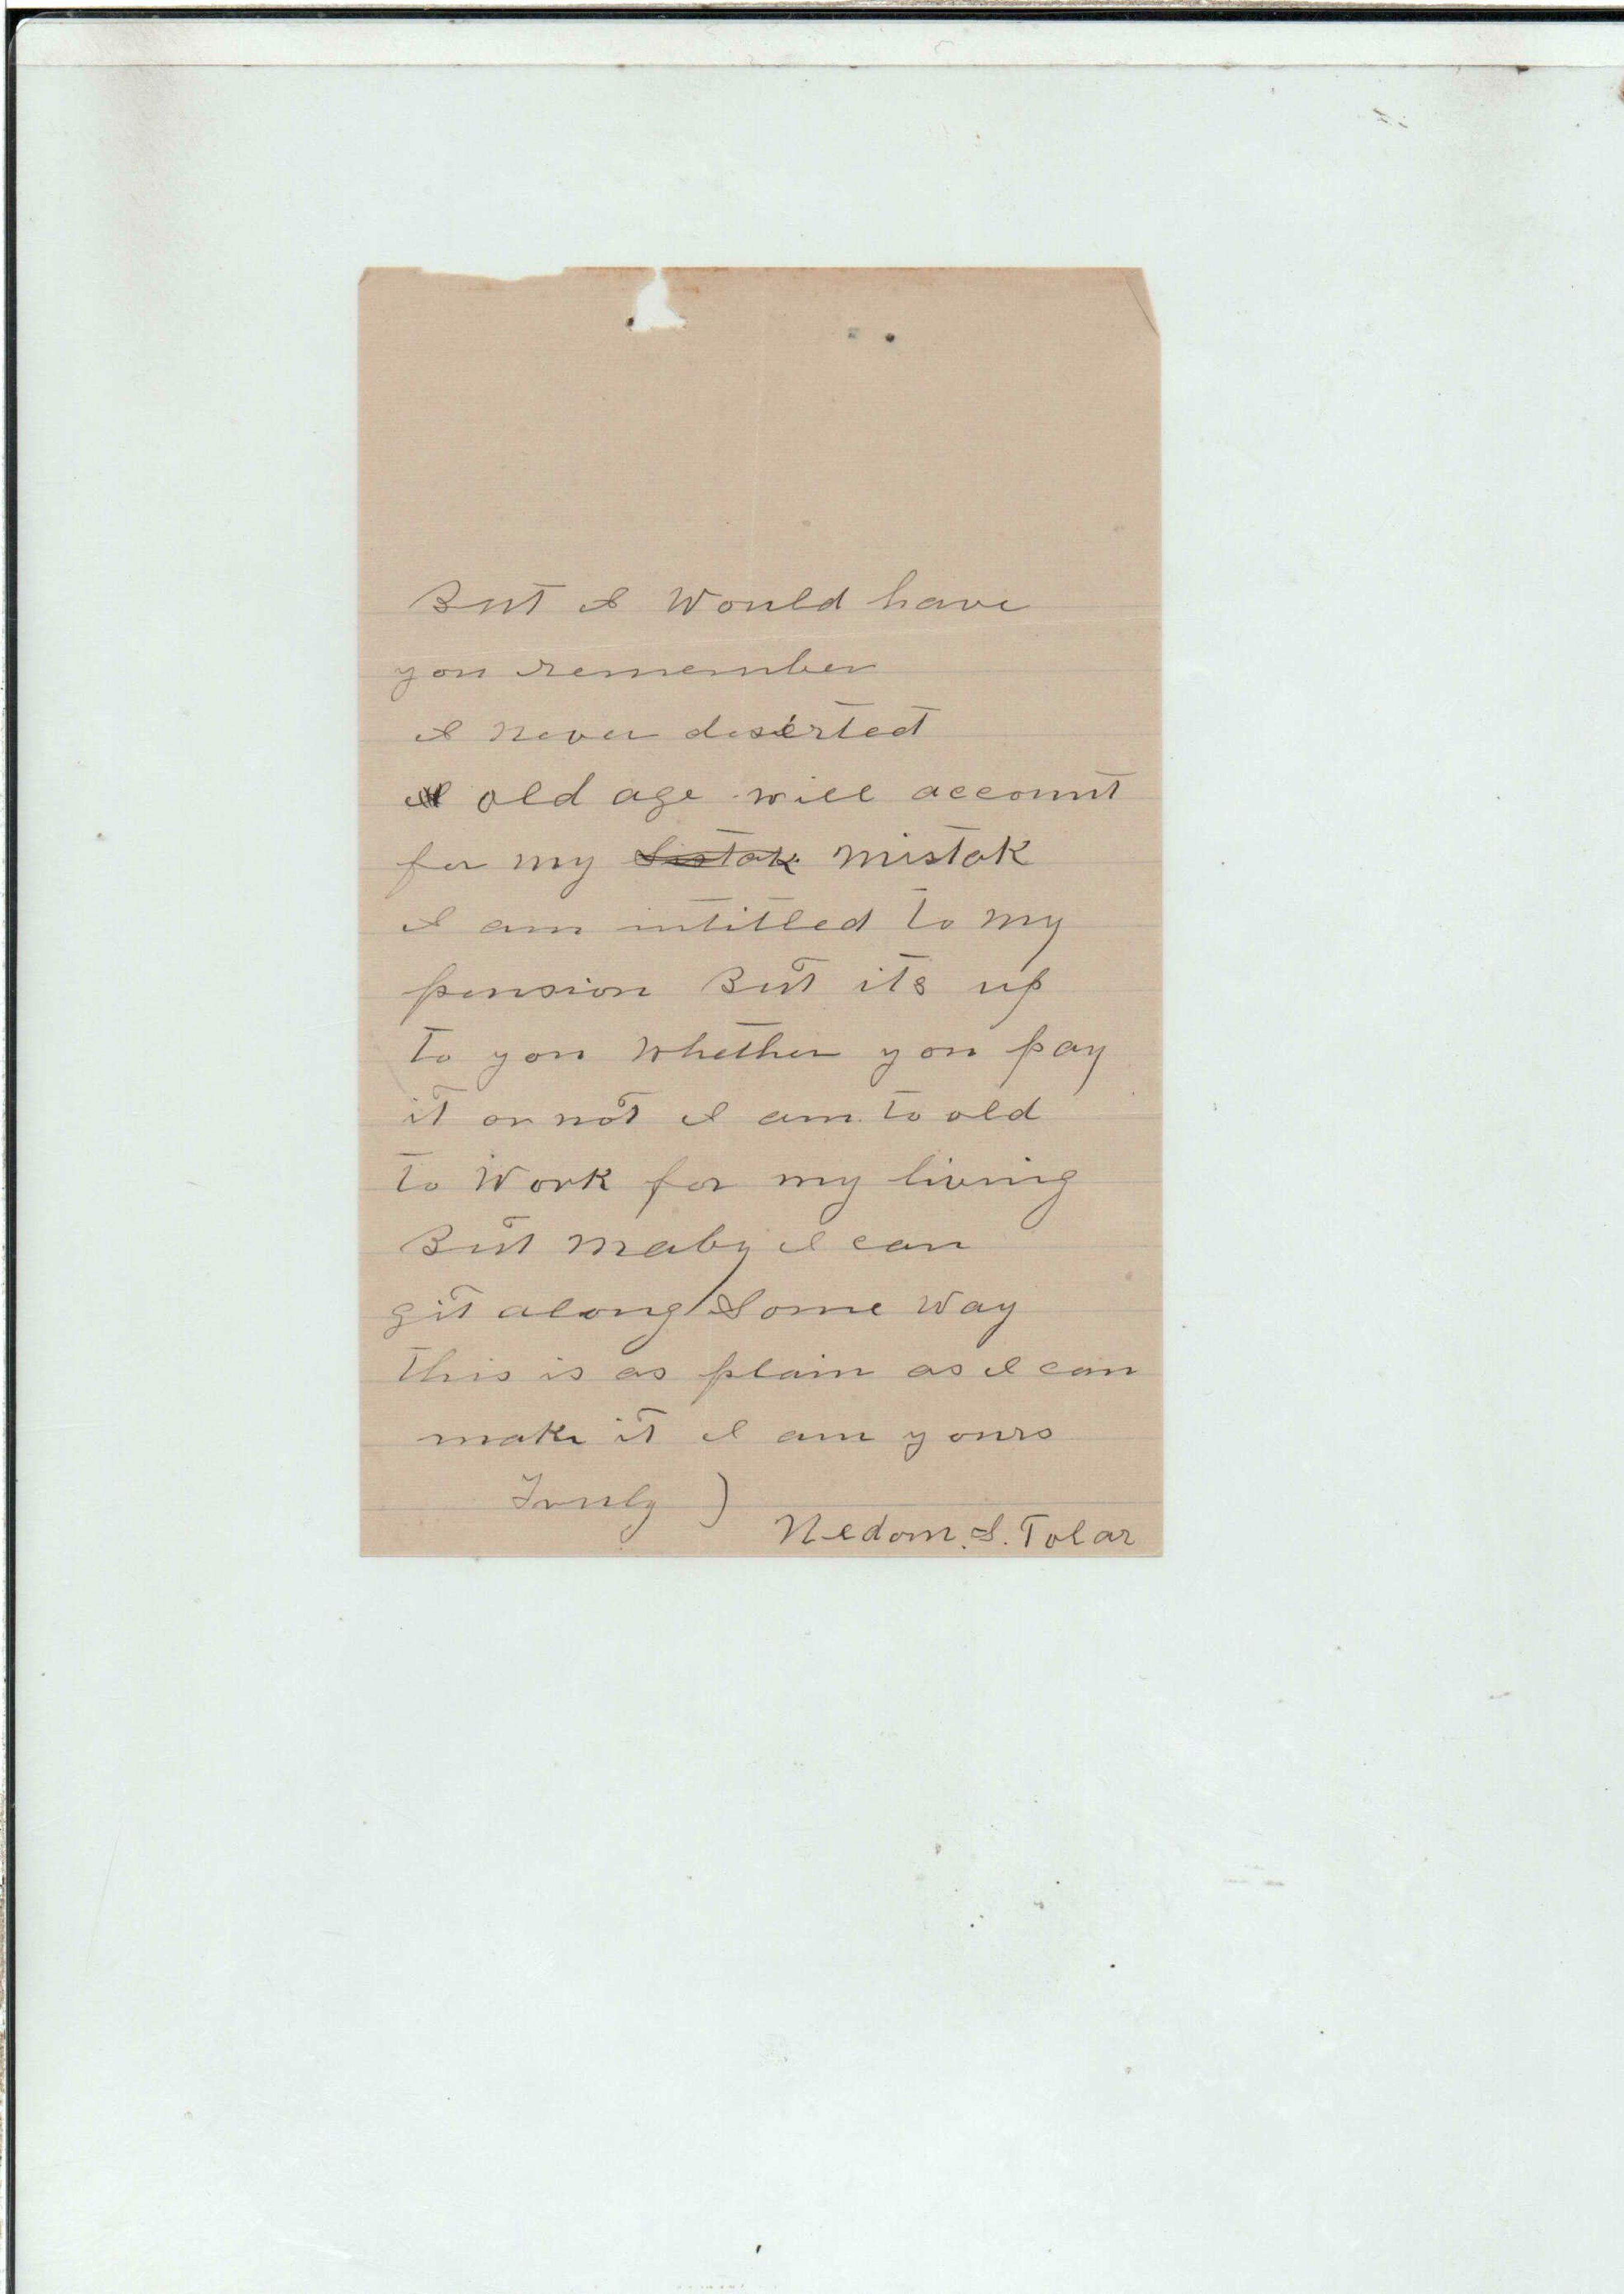 But I Would have
you remember
I never deserted
old age will account
for my Sistak mistak
I am intitled to my
pension But its up
to you Whether you pay
it or not I am to old
to Work for my living
But maby I can
git along Some Way
this is as plain as I can
make it I am yours
Truly )
Nedom. S. Tolar